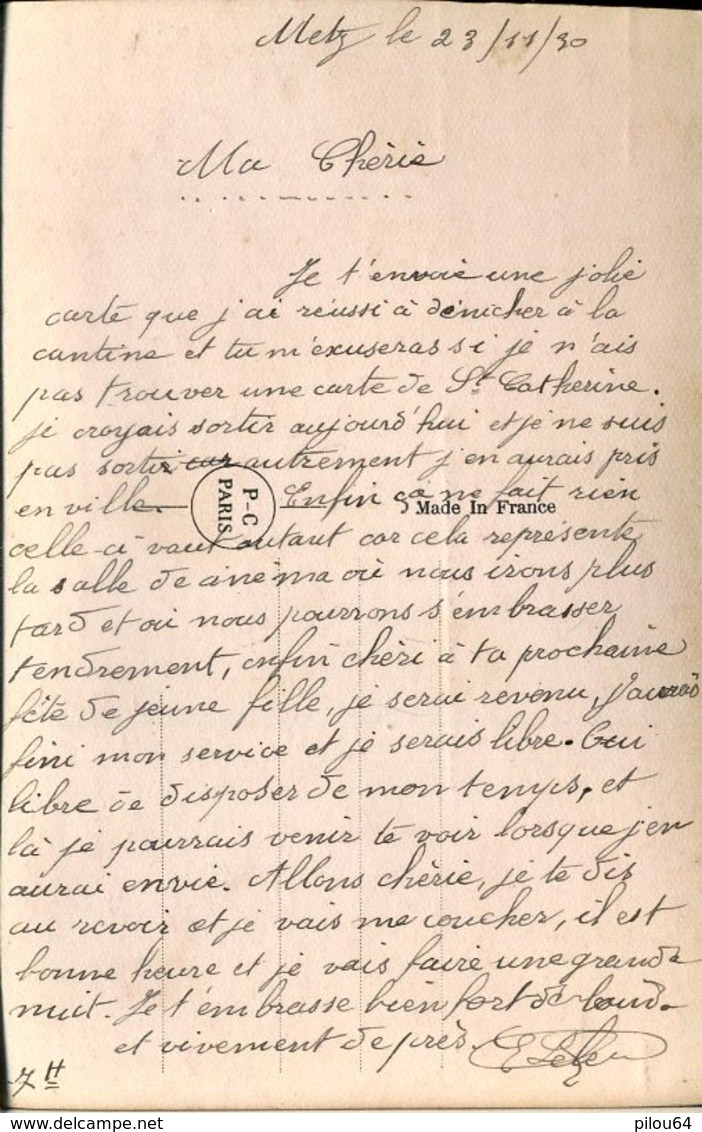 Metz le 23/11/30
Ma Chèrie
Je t'envoie une jolie
carte que j'ai réussi à dénicher à la
cantine et tu m'exuseras si je n'ais
pas trouver une carte de St Catherine.
je croyais sortir aujourd'hui et je ne suis
pas sortir car autrement j'en aurais pris
en ville. Enfin ça ne fait rien
P-C
PARIS
Made In France
celle-ci vaut autant car cela représente
la salle de cinema où nous irons plus
tard et où nous pourrons s'embrasser
tendrement, enfin chèri à ta prochaine
fête de jeune fille, je serai revenu, j'aurais
fini mon service et je serais libre. Oui
libre de disposer de mon temps, et
là je pourrais venir te voir lorsque j'en
aurai envie. Allons chèrie, je te dis
au revoir et je vais me coucher, il est
bonne heure et je vais faire une grande
nuit. Je t'embrasse bien fort de
et vivement de près. E
7 H
delcampe.net
pilou64